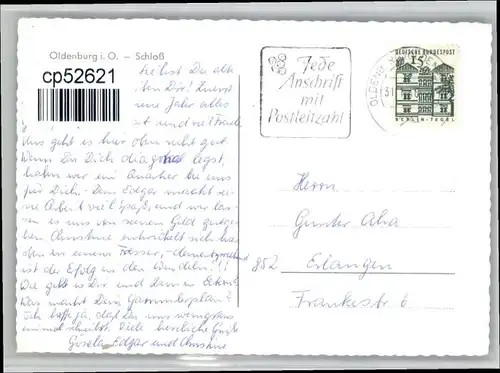 Oldenburg i. O. – Schloß
cp52621
heißt Du alte
Dir! Zuerst
neue Jahr alles
und viel Freude
Uns geht es hier oben recht gut.
Wenn Du Dich diagonal legst,
haben wir ein Quartier bei uns
für Dich. Dem Edgar macht sei-
ne Arbeit viel Spaß, und wir las-
sen es uns von seinem Geld gut ge-
hen. Christine entwickelt sich
zu einem Fresser, dementsprechend
ist der Erfolg in den Windeln!!!
Wie geht es Dir und Deinen Eltern?
Was macht Dein Gammlerplan?
Ich hoffe ja, daß Du uns wenigstens
einmal schreibst. Viele herzliche Grüße
Gisela, Edgar und Christine
Jede
Anschrift
mit
Postleitzahl
OLDENB
31
DEUTSCHE BUNDESPOST
15
BERLIN-TEGEL
Herrn
Gunter Aha
852 Erlangen
Frankestr. 6